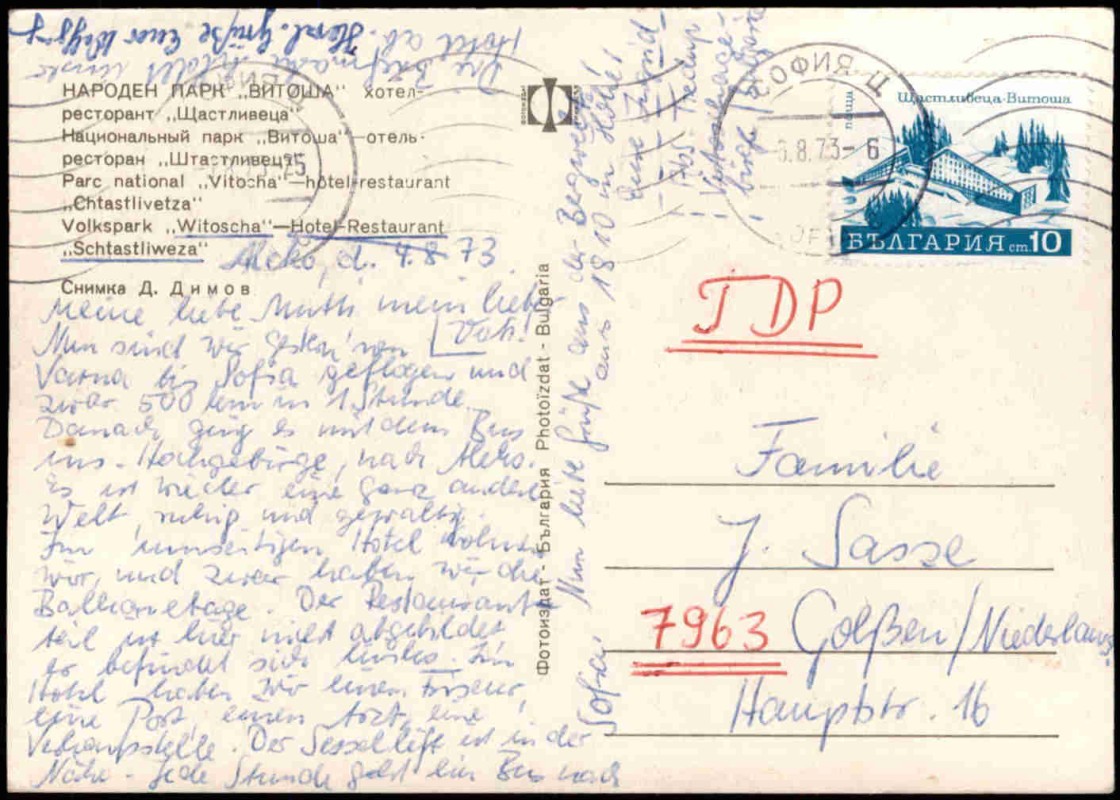 НАРОДЕН ПАРК „ВИТОША“ хотел-
ресторант „Щастливеца“
Национальный парк „Витоша“—отель-
ресторан „Штастливец“
Parc national „Vitocha“—hôtel-restaurant
„Chtastlivetza“
Volkspark „Witoscha“—Hotel-Restaurant
„Schtastliweza“
Снимка Д. Димов
Aleko, d. 4.8.73.
Meine liebe Mutti mein lieber
Vati!
Nun sind wir gestern von
Varna bis Sofia geflogen und
zwar 500 km in 1 Stunde.
Danach ging es mit dem Bus
ins Hochgebirge, nach Aleko.
Es ist wieder eine ganz andere
Welt, ruhig und gewaltig.
Im umseitigen Hotel wohnen
wir, und zwar haben wir die
Balkonetage. Der Restaurant-
teil ist hier nicht abgebildet,
er befindet sich links. Im
Hotel haben wir einen Friseur,
eine Post, einen Arzt, eine
Verkaufsstelle. Der Sessellift ist in der
Nähe. Jede Stunde geht ein Bus nach
Sofia. Nun liebe Grüße aus der Bergwelt
aus 1810 m Höhe!
Eure
Die Briefmarke bildet unser
Hotel ab. Herzl. Grüße Euer
Фотоиздат - България Photoïzdat - Bulgaria
СОФИЯ Ц
6.8.73-6
поща
Щастливеца-Витоша
БЪЛГАРИЯ ст. 10
TDP
Familie
J. Sasse
7963 Golßen/Niederlaus.
Hauptstr. 16